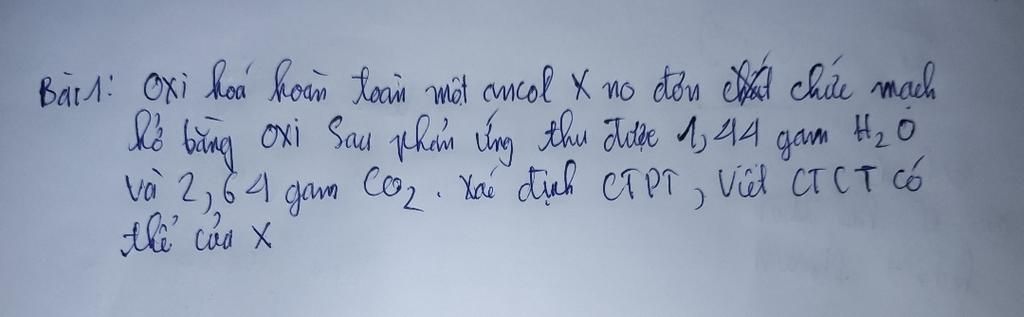 Bài 1: Oxi hoá hoàn toàn một ancol X no đơn chức mạch
hở bằng oxi sau phản ứng thu được 1,44 gam H₂O
và 2,64 gam CO₂. Xác định CTPT, Viết CTCT có
thể của X